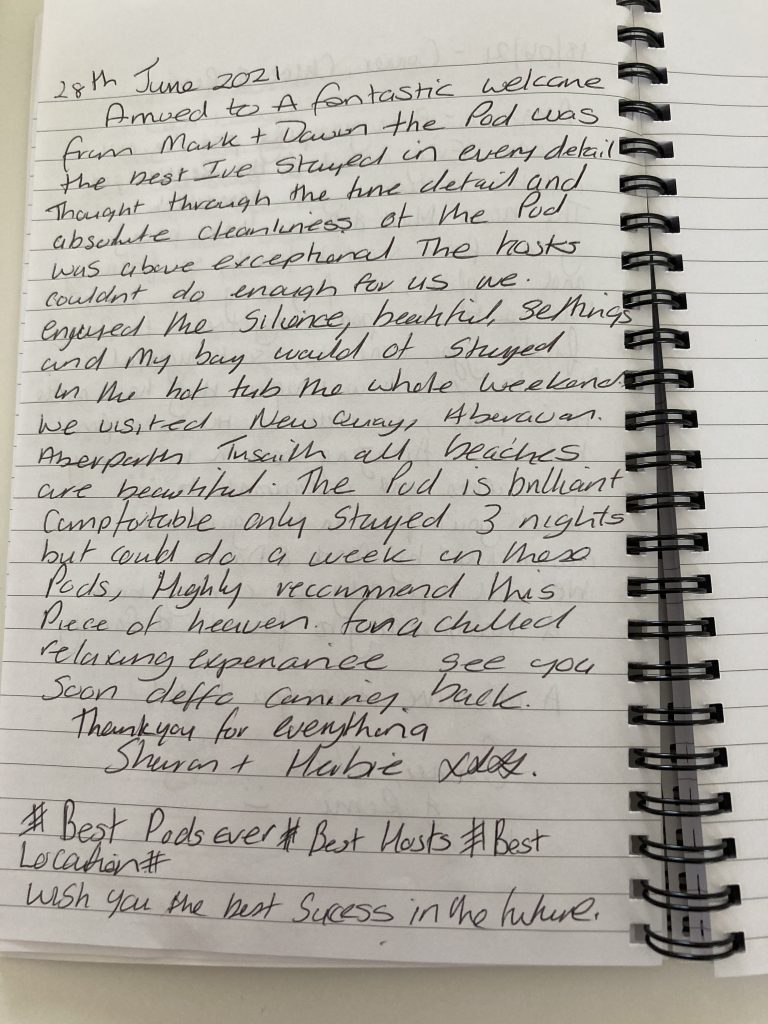 28th June 2021
Arrived to A fantastic welcome
from Mark + Dawn the Pod was
the best Ive Stayed in every detail
Thought through the fine detail and
absolute cleanliness of the Pod
was above exceptional The hosts
couldnt do enough for us we.
enjoyed the Silence, beautiful, Settings
and My boy would of Stayed
in the hot tub the whole weekend.
We visited New Quay, Aberavon.
Aberporth Tresaith all beaches
are beautiful. The Pod is brilliant
Compfortable only Stayed 3 nights
but could do a week in these
Pods, Highly recommend this
Piece of heaven. for a chilled
relaxing experiance see you
Soon deffo coming. back.
Thankyou for everything
Sharon + Herbie xxxx.
# Best Pods ever # Best Hosts # Best
Location #
Wish you the best Sucess in the future.